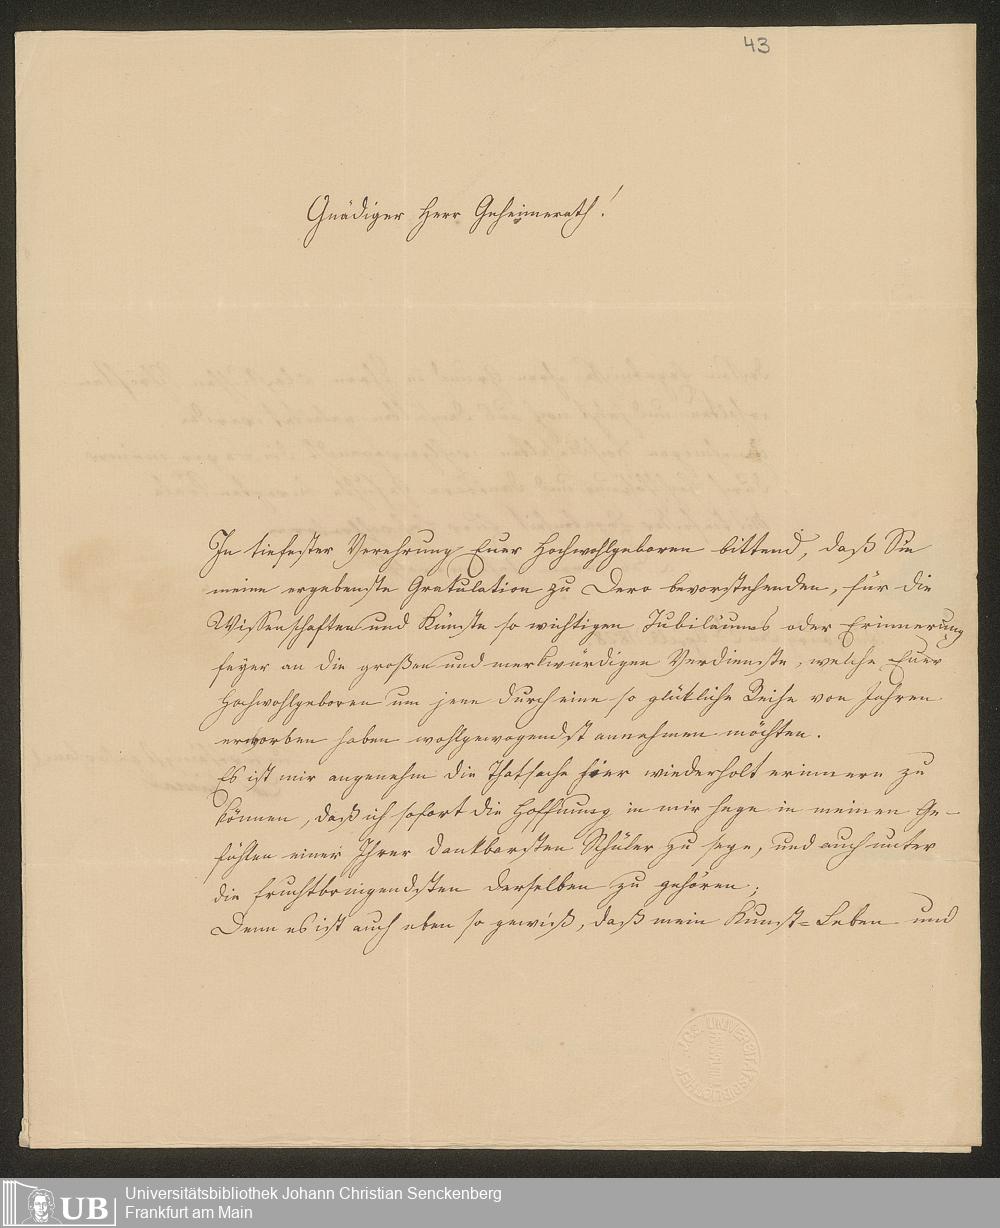 43
Gnädiger Herr Geheimerath!
In tiefester Verehrung Euer Hochwohlgeboren bittend, daß Sie
meine ergebenste Gratulation zu Dero bevorstehenden, für die
Wissenschaften und Künste so wichtigen Jubiläums oder Erinnerung
feyer an die großen und merkwürdigen Verdienste, welche Euer
Hochwohlgeboren um jene durch eine so glükliche Reihe von Jahren
erworben haben wohlgewogendst annehmen möchten.
Es ist mir angenehm die Thatsache hier wiederholt erinnern zu
können, daß ich sofort die Hoffnung in mir hege in meinen Ge-
fühlen einer Ihrer dankbarsten Schüler zu seye, und auch unter
die fruchtbringendsten derselben zu gehören.
Denn es ist auch eben so gewiß, daß mein Kunst=Leben und
UB
Universitätsbibliothek Johann Christian Senckenberg
Frankfurt am Main